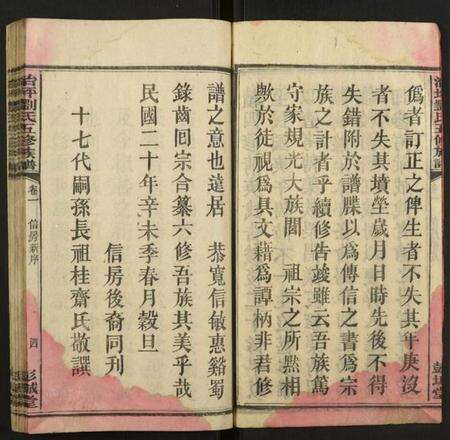 僞者訂正之俾生者不失其年庚沒
者不失其墳塋歲月日時先後不得
失錯附於譜牒以為傳信之書為宗
族之計者乎續修告竣雖云吾族篤
守家規光大族閭　祖宗之所黙相
歟於徒視爲具文藉爲譚柄非君修
譜之意也遠居　恭寬信敏惠谿蜀
錄齒回宗合纂六修吾族其美乎哉
民國二十年辛未季春月穀旦
信房後裔同刊
十七代嗣孫長祖桂齋氏敬譔
治坪劉氏五修族譜
卷一
信房新序
四
彭城堂